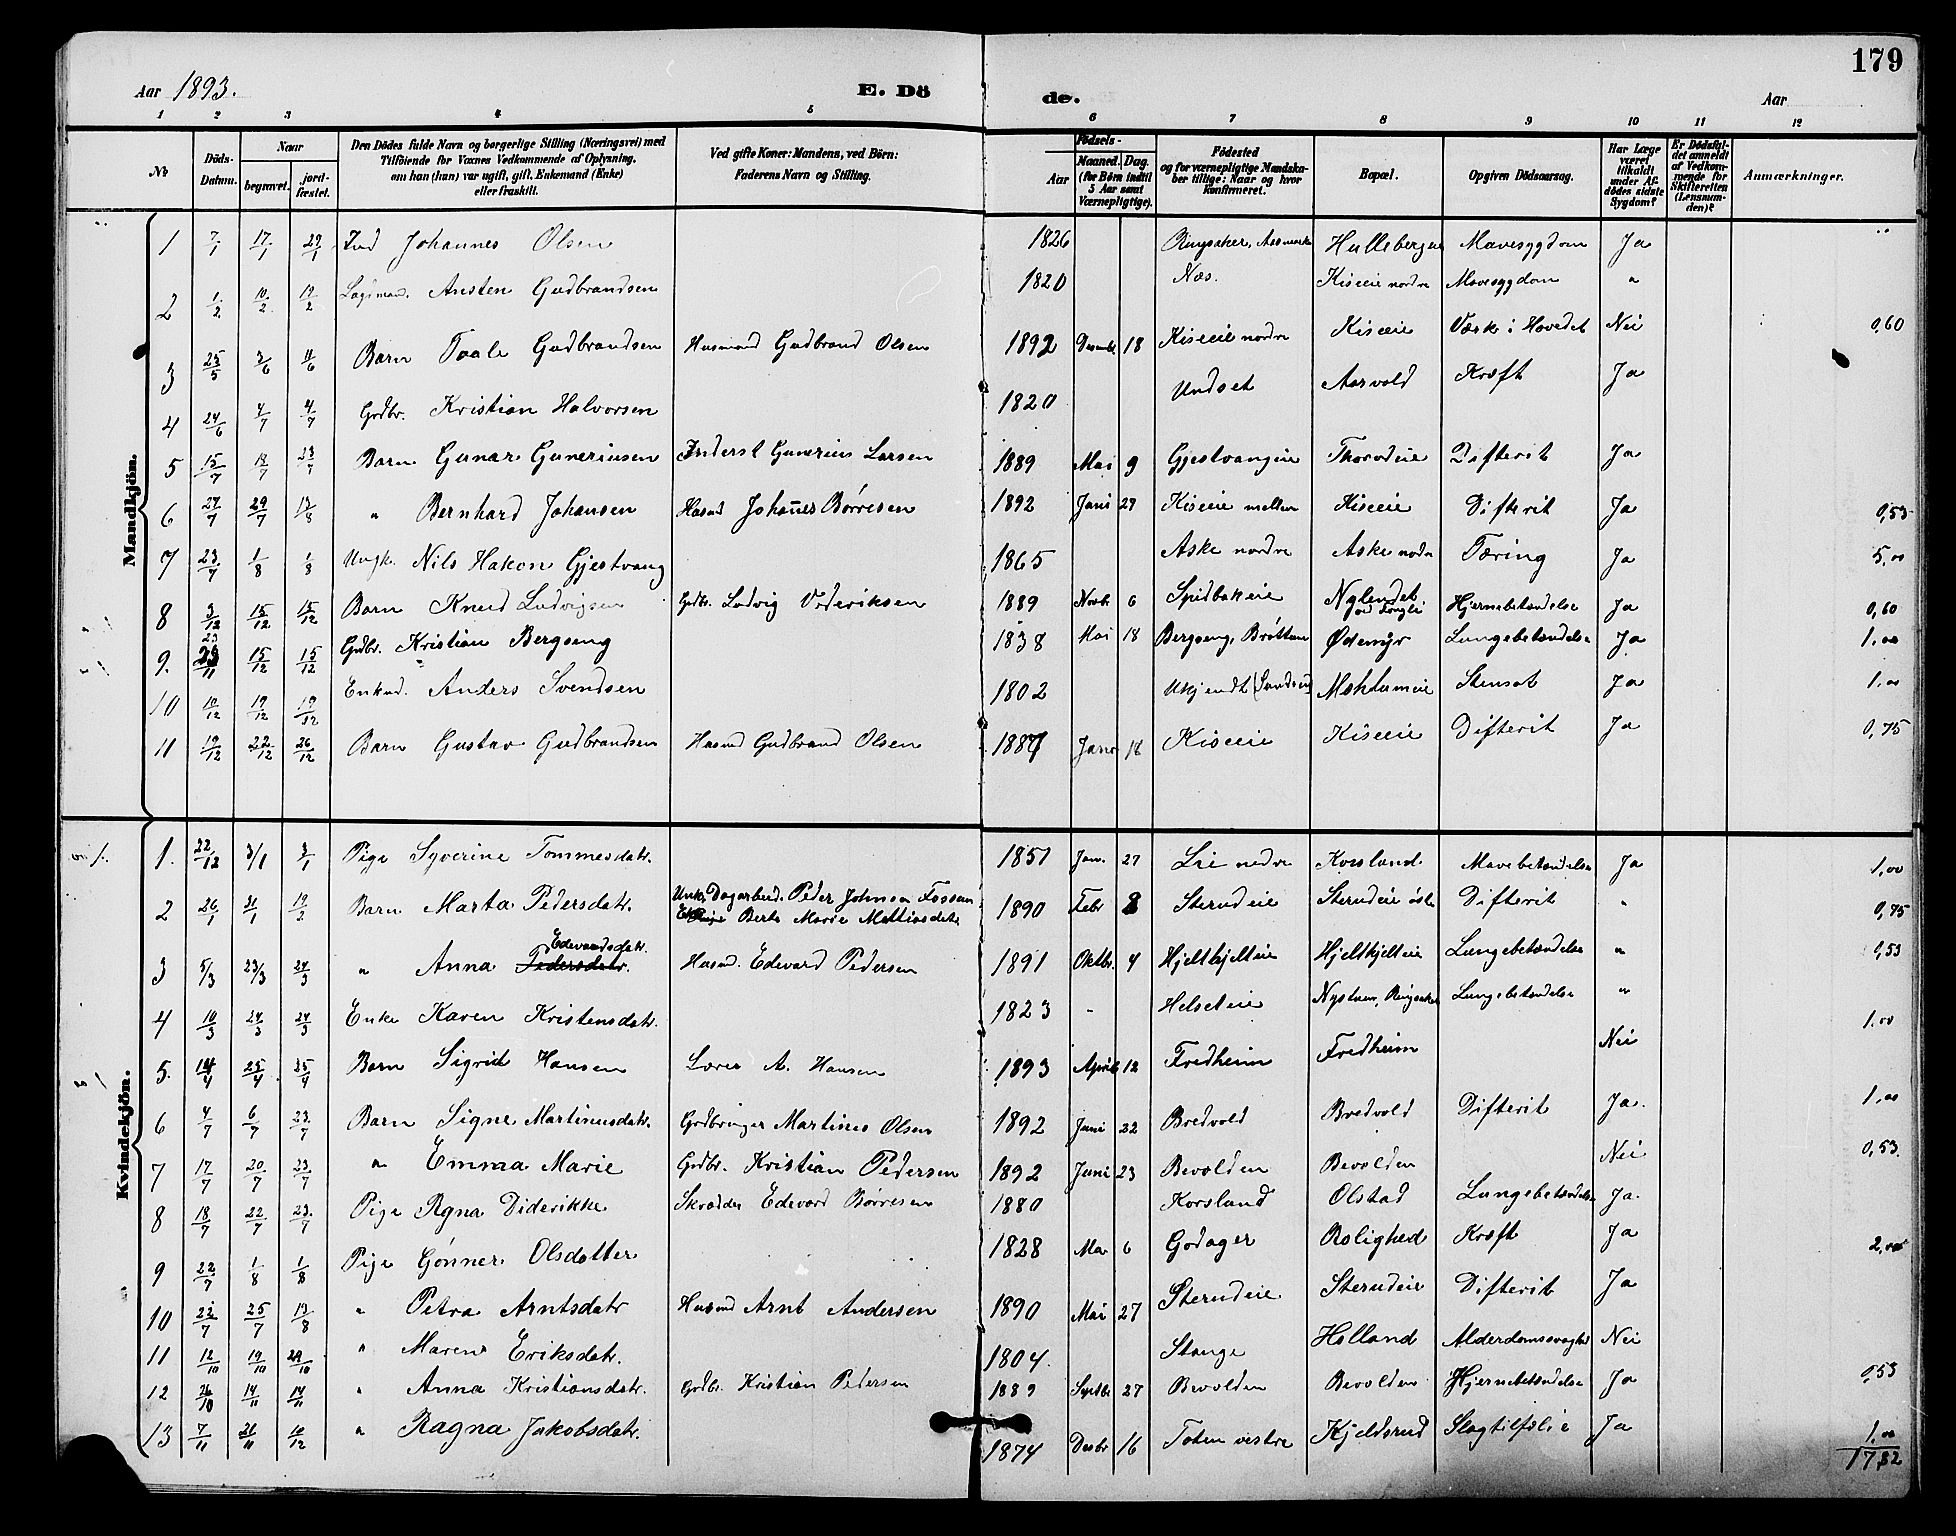 179
Aar 1893. E. Dö de. Aar
1 2 3 4 5 6 7 8 9 10 11 12
No
Döds-Datum.
Naar
begravet. jordfæstet.
Den Dödes fulde Navn og borgerlige Stilling (Næringsvei) med
Tilföiende for Voxnes Vedkommende af Oplysning,
om han (hun) var ugift, gift, Enkemand (Enke)
eller fraskilt.
Ved gifte Koner: Mandens, ved Börn:
Faderens Navn og Stilling.
Födsels-
Aar Maaned. Dag.
(for Börn indtil
5 Aar samt
Værnepligtige).
Födested
og for værnepligtige Mandska-
ber tillige: Naar og hvor
konfirmeret.
Bopæl.
Opgiven Dödsaarsag.
Har Læge
været
tilkaldt
under Af-
dödes sidste
Sygdom?
Er Dödsfal-
det anmeldt
af Vedkom-
mende for
Skifteretten
(Lensman-
den)?
Anmærkninger.
Mandkjön.
1 7/1 17/1 29/1 Ind Johannes Olsen 1826 Ringsaker, Aasmark Hulleberget Mavesygdom Ja
2 1/2 10/2 19/2 Lagsmand. Austen Gudbrandsen 1820 Næs. Kiseeie nordre Mavesygdom "
3 25/5 3/6 11/6 Barn Taale Gudbrandsen Husmand Gudbrand Olsen 1892 Desembr 18 Kiseeie nordre Kiseeie Værk i Hovedet Nei 0,60
4 24/6 4/7 4/7 Grdbr. Kristian Halvorsen 1820 Undset Aarvold Kræft Ja
5 15/7 18/7 23/7 Barn Gunar Guneriusen Inderst Gunerius Larsen 1889 Mai 9 Gjestvangeie Thorudeie Difterit Ja
6 27/7 29/7 13/8 " Bernhard Johansen Husmd Johannes Børresen 1892 Juni 27 Kiseeie mellem Kiseeie Difterit Ja 0,53
7 23/7 1/8 1/8 Ungk. Nils Hakon Gjestvang 1865 Aske nordre Aske nordre Tæring Ja 5,00
8 3/12 15/12 15/12 Barn Knud Ludvigsen Grdbr. Ludvig Dideriksen 1889 Novbr 6 Spidbakeie Nylendet Hjernebetændelse Ja 0,60
9. 23/11 15/12 15/12 Grdbr. Kristian Bergseng 1838 Mai 18 Bergseng, Brøttum Ødemyr Lungebetændelse Ja 1.00
10 10/12 19/12 19/12 Enkmd. Anders Svendsen 1802 Ukjendt Mohlumeie Stensot Ja 1.00
11 19/12 22/12 26/12 Barn Gustav Gudbrandsen Husmd Gudbrand Olsen 1887 Janr 18 Kiseeie Kiseeie Difterit Ja 0,75
Kvindekjön.
1. 22/12 3/1 3/1 Pige Syverine Tommesdatr. 1851 Jan. 27 Lie nedre Korsland Mavebetændelse Ja 1,00
2 26/1 31/1 19/2 Barn Marta Pedersdatr. Unk. Dagarbeid. Peder Johnsen Fossum 1890 Febr 8 Sterudeie Sterudeie Difterit " 0,75
Pige Berte Marie Mathiasdatr
Edevardsdatr.
3 5/3 23/3 24/3 " Anna Pedersdatr. Husmd. Edevard Pedersen 1891 Oktbr. 4 Hjeltkjelteie Hjeltkjelteie Lungebetændelse " 0,53
4 10/3 24/3 24/3 Enke Karen Kristensdatr. 1823 - Helseteie Nystuen, Ringsaker Lungebetændelse " 1.00
5. 14/4 25/4 25/4 Barn Sigrid Hansen Lærer A. Hansen 1893 April 12 Fredheim Fredheim Nei
6 4/7 6/7 23/7 Barn Signe Martinusdatr. Grdbruger Martines Olsen 1892 Juni 22 Bredvold Bredvold Difterit Ja. 1,00
7 17/7 20/7 23/7 " Emma Marie Grdbr. Kristian Pedersen 1892 Juni 23 Bevolden Bevolden Nei 0,53.
8 18/7 22/7 23/7 Pige Agna Diderikke Skrædder Edevard Børresen 1880 Korsland Olstad Lungebetændelse Ja.
9 22/7 1/8 1/8 Pige Gønner Olsdatter 1828 Mai 6 Godager Rolighed Kræft Ja 2,00
10 22/7 25/7 13/8 " Petra Arntsdatr Husmd Arnt Andersen 1890 Mai 27 Sterudeie Sterudeie Difterit Ja
11 12/10 19/10 29/10 " Maren Eriksdatr. 1804. Stange Holland Alderdomssvaghed Nei
12 26/10 14/11 14/11 " Anna Kristiansdatr. Grdbr. Kristian Pedersen 1889 Septbr 27 Bevolden Bevolden Hjernebetændelse Ja 0,53
13 7/11 21/11 10/12 " Ragna Jakobsdatr. 1874 Desbr 16 Toten vestre Kjeldsrud Slagtilfælde Ja 1.00
17,82